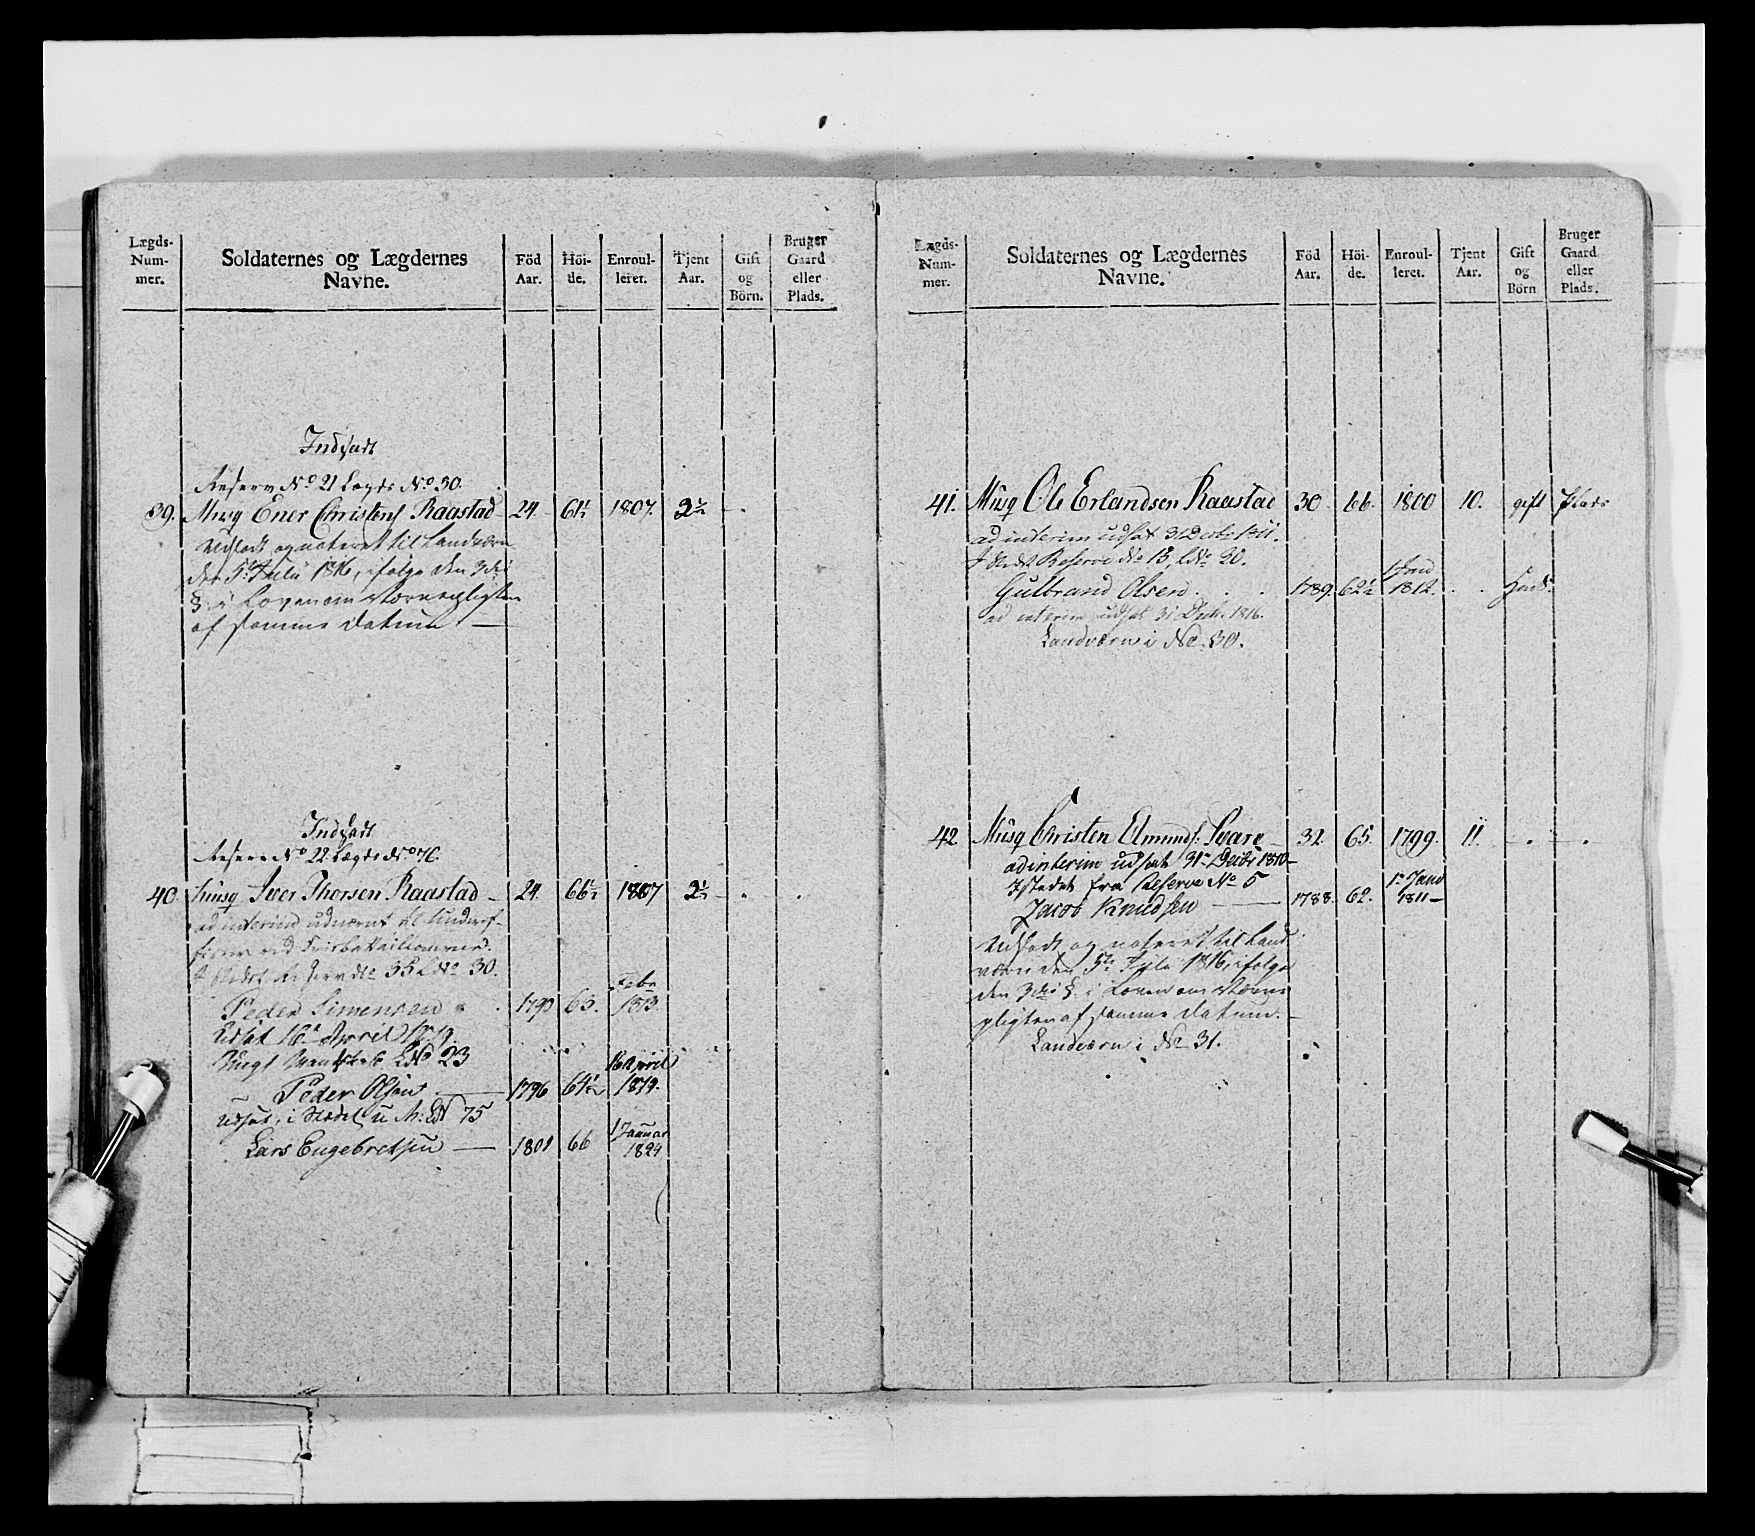 Lægds-Num-mer. Soldaternes og Lægdernes Navne. Föd Aar. Höi-de. Enroul-leret. Tjent Aar. Gift og Börn. Bruger Gaard eller Plads.
Indsadt
Reserv No 21 Lægds No 30.
39. Musq Ener Christens Raastad 24. 61½ 1807. 2½ - -
Udsadt og noteret til Landværn
den 5te Julii 1816, ifølge den 3die
§ i Loven om Værnepligten
af samme Datum. —
Indsadt
Reserv No 22 Lægds No 76.
40. Musq Iver Thorsen Raastad 24. 66½ 1807 2½ - -
ad interim udnævnt til Underof-
I Stedet Reserv No 35 L No 30.
Peder Simensen 1790 63. Febr 1813.
Udsat 16de April 1819.
L No 23
Peder Olsen 1796 64½ 16 April 1819.
Udsat, i Stedet u M: L N 75
Lars Engebretsen — 1801 66 1 Januar 1824
Lægds-Num-mer. Soldaternes og Lægdernes Navne. Föd Aar. Höi-de. Enroul-leret. Tjent Aar. Gift og Börn Bruger Gaard eller Plads.
41. Musq Ole Erlandsen Raastad 30. 66. 1800 10. gift Plads
ad interim udsat 31 Decbr 1811.
I Stedet Reserve No 13, L No 20.
Gulbrand Olsen 1789. 62½ 1 Janu 1812.
ad interim udsat 31 Decb. 1816.
Landværn i No 30.
42 Musq Christen Elmunds: 32. 65. 1799. 11. - -
ad interim udsat 31te Decbr 1810 —
Istedet fra Reserve No 5
Jacob Knudsen — 1788. 62. 1te Janu 1811 —
Udsadt og noteret til Land-
værn den 5te Julii 1816, ifølge
den 3die §. i Loven om Værne-
pligten af samme Datum. —
Landværn i No 31.